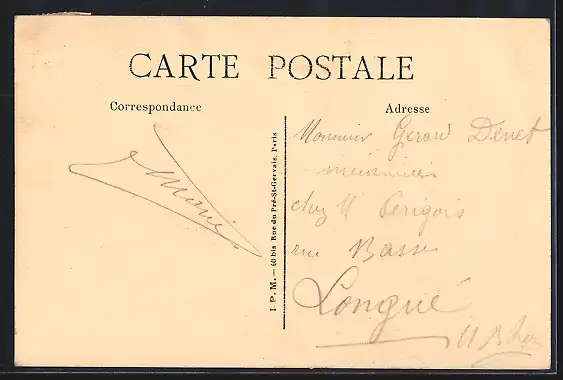 CARTE POSTALE
Correspondance
Adresse
Marie
I. P. M. — 40 bis Rue du Pré-St-Gervais, Paris
Monsieur Gerard Denet
chez M Perigois
rue Basse
Longué